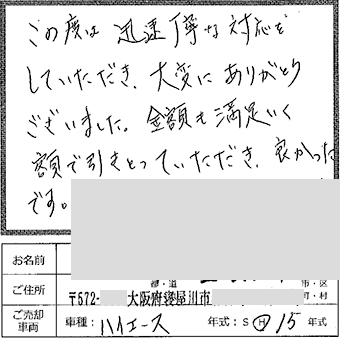 この度は迅速丁寧な対応を
していただき、大変にありがとう
ございました。金額も満足いく
額で引きとっていただき、良かった
です。
お名前
ご住所 都・道 市・区
〒572- 大阪府寝屋川市 町・村
ご売却車両 車種：ハイエース 年式：S H 15 年式